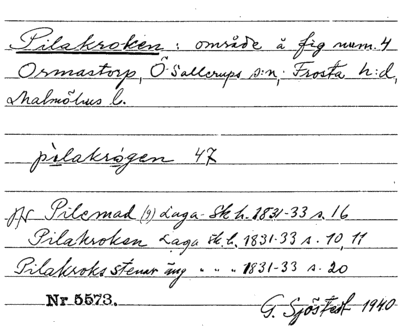 Pilakroken: område å fig num. 4
Ormastorp, Ö. Sallerups s:n, Frosta h:d,
Malmöhus l.
pilakrogen 47
Pilemad (9) Laga Sk h. 1831-33 s. 16
Pilakroken Laga Sk. h. 1831-33 s. 10, 11
Pilakroks stenar äng " " " 1831-33 s. 20
Nr 5573.
G. Sjöstedt 1940